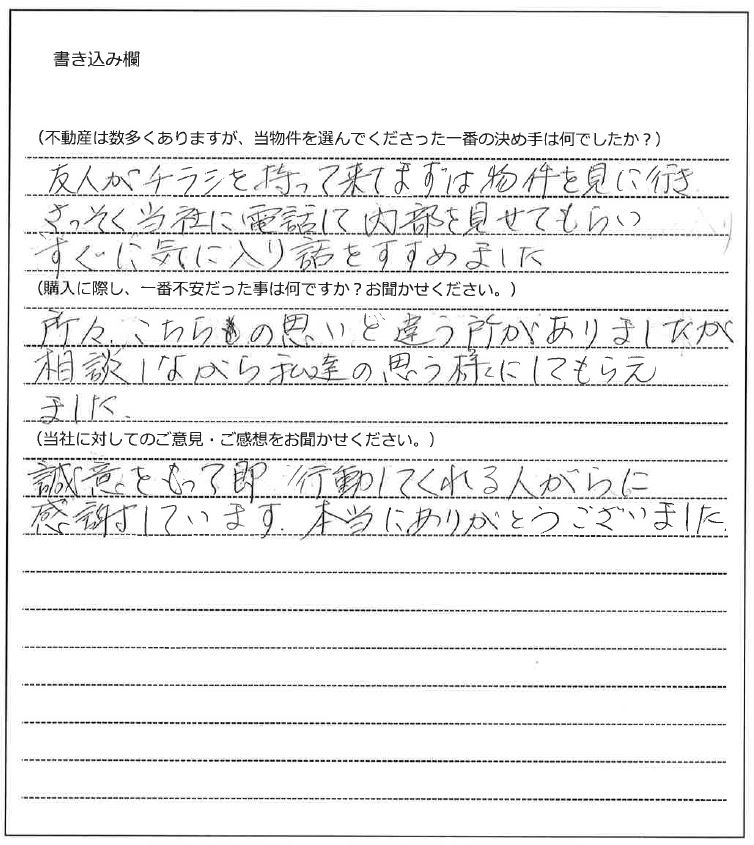 書き込み欄
(不動産は数多くありますが、当物件を選んでくださった一番の決め手は何でしたか？)
友人がチラシを持って来てまずは物件を見に行き
さっそく当社に電話して内部を見せてもらい
すぐに気に入り話をすすめました
(購入に際し、一番不安だった事は何ですか？お聞かせください。)
所々、こちらの思いと違う所がありましたが
相談しながら私達の思う様にしてもらえ
ました.
(当社に対してのご意見・ご感想をお聞かせください。)
誠意をもって即 行動してくれる人がらに
感謝しています. 本当にありがとうございました.